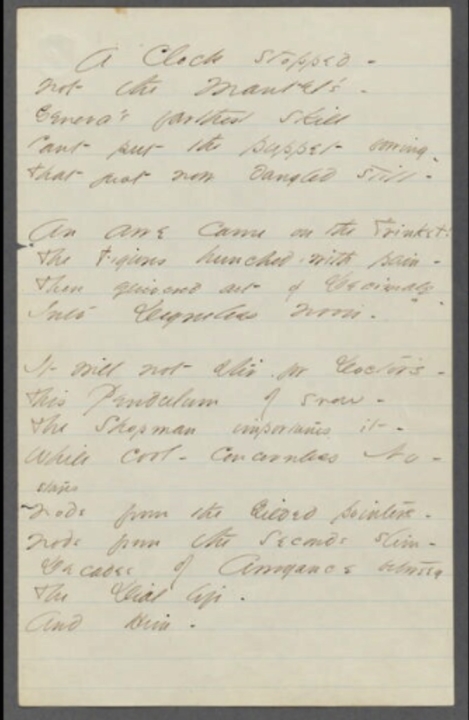 A Clock stopped -
not the Mantel's -
Geneva's farthest skill
Cant put the puppet bowing -
that just now dangled still -
An awe came on the Trinket!
The Figures hunched - with pain -
Then quivered out of Decimals -
Into Degreeless noon -
It will not stir for Doctor's -
this Pendulum of snow -
The Shopman importunes it -
While cool - concernless No -
nods from the Gilded pointers -
nods from the Seconds slim -
Decades of Arrogance between
The Dial life -
And Him -